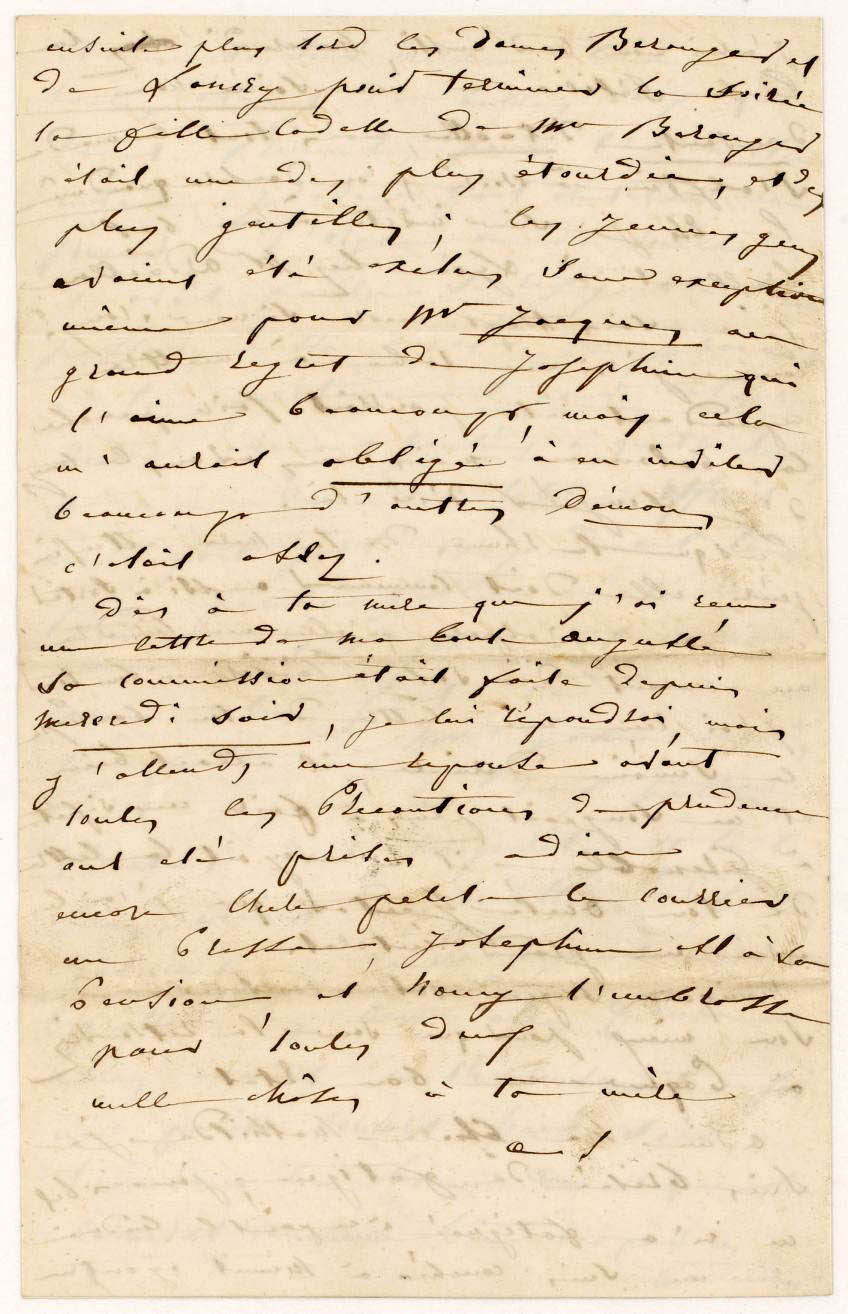 ensuite plus tard les dames Beranger et
de Loucey pour terminer la soirée
la fille cadette de Mme Beranger
était une des plus étourdies, et des
plus gentilles; les jeunes gens
avaient été exclus sans exception
même pour Mr Jacques au
grand regret de Josephine qui
l'aime beaucoup, mais cela
m'aurait obligée à en inviter
beaucoup d'autres Démons
c'etait assez.
Dis à ta mere que j'ai recu
une lettre de ma bonne augusta
sa commission était faite depuis
mercredi soir, je lui répondrai, mais
j'attends une reponse avant
toutes les Precautions de prudence
ont eté prises adieu
encore Chere petite le courrier
me Presse, Josephine est à sa
Pension et nous t'embrasse
pour toutes deux
mille choses à ta mère